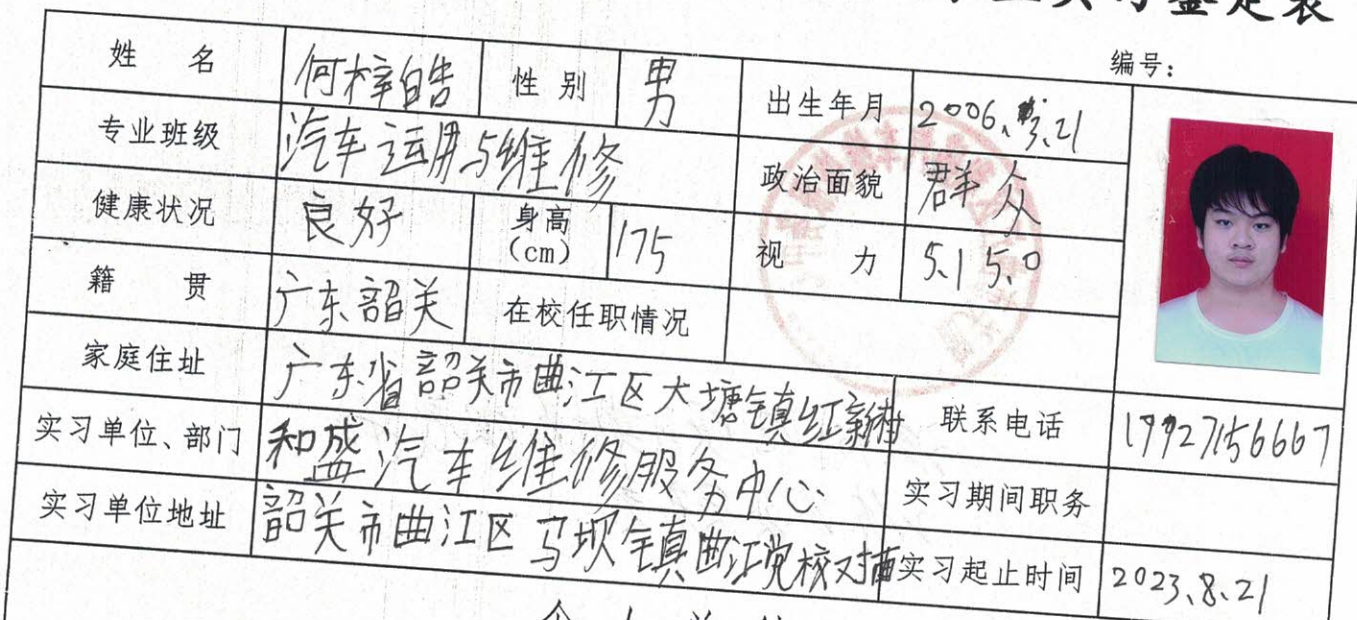 实习鉴定表
编号：
姓 名 何梓皓 性别 男 出生年月 2006.3.21
专业班级 汽车运用与维修 政治面貌 群众
健康状况 良好 身高(cm) 175 视力 5.1 5.0
籍贯 广东韶关 在校任职情况
家庭住址 广东省韶关市曲江区大塘镇红新村 联系电话 19927156667
实习单位、部门 和盛汽车维修服务中心 实习期间职务
实习单位地址 韶关市曲江区马坝镇曲江党校对面 实习起止时间 2023.8.21